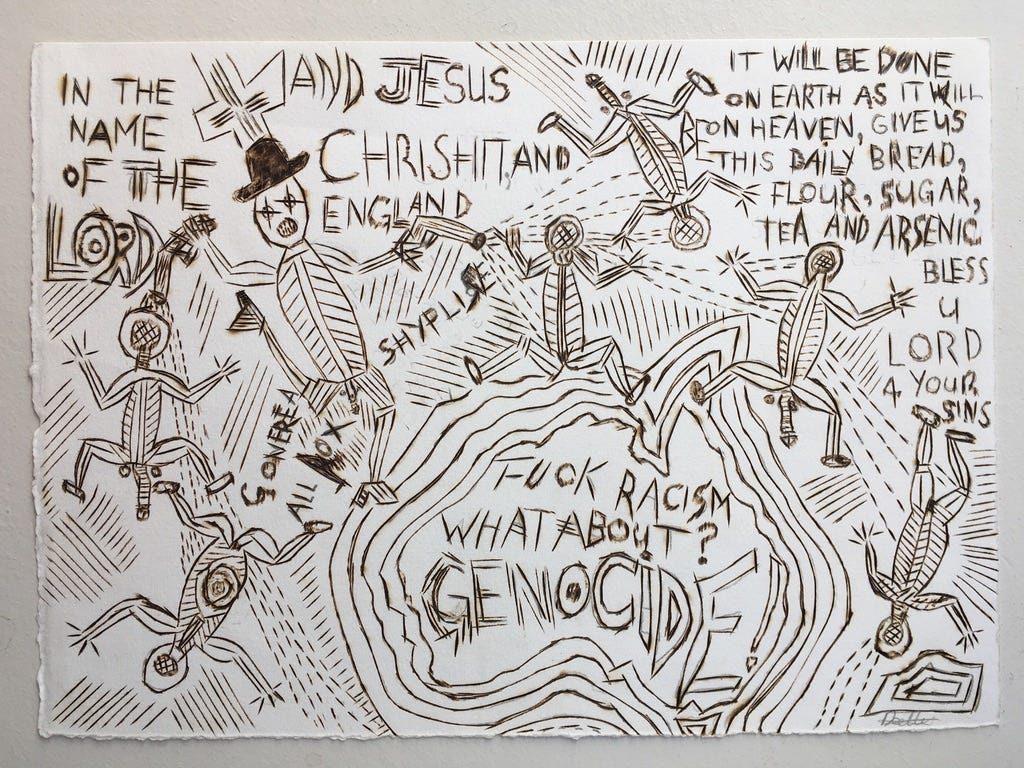 IN THE
NAME
OF THE
LORD
AND JESUS
CHRISHIT, AND
ENGLAND
IT WILL BE DONE
ON EARTH AS IT WILL
BE ON HEAVEN, GIVE US
THIS DAILY BREAD,
FLOUR, SUGAR,
TEA AND ARSENIC
BLESS
U
LORD
4 YOUR
SINS
SHYPLISE
GONEREA
ALL POX
FUCK RACISM
WHAT ABOUT?
GENOCIDE!